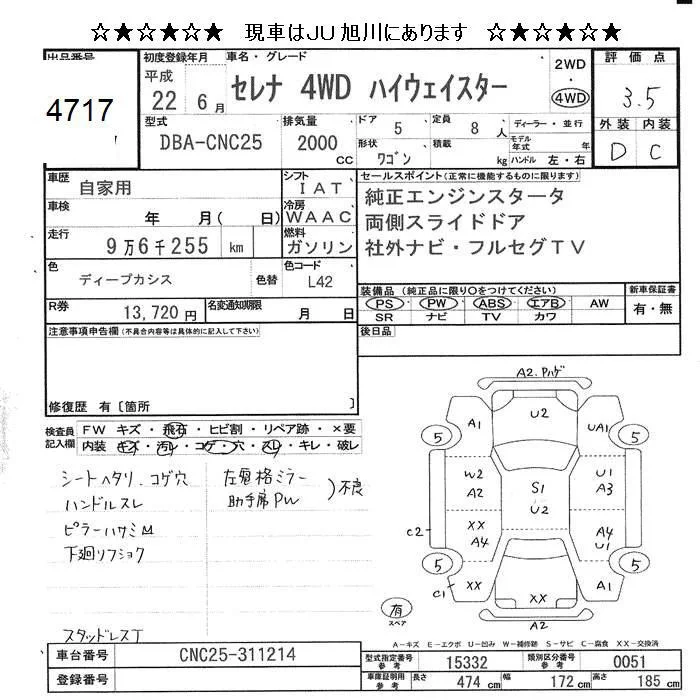 ☆★☆★☆★ 現車はJU旭川にあります ☆★☆★☆★
出品番号 初度登録年月 車名・グレード 2WD 評価点
4717 平成 22年 6月 セレナ 4WD ハイウェイスター 4WD 3.5
型式 排気量 ドア 5 定員 8人 ディーラー・並行 外装 内装
DBA-CNC25 2000cc 形状 ワゴン 積載 kg モデル年式 年 ハンドル 左・右 D C
車歴 自家用 シフト IAT セールスポイント(正常に機能するものに限ります)
車検 年 月( 日) 冷房 WAAC 純正エンジンスタータ
走行 9万6千255 km 燃料 ガソリン 両側スライドドア
社外ナビ・フルセグTV
色 ディープカシス 色替 色コード L42
装備品(純正品に限り○をつけてください) 新車保証書
R券 13,720円 名変通知期限 月 日 PS PW ABS エアB AW 有・無
SR ナビ TV カワ
注意事項申告欄(不具合内容等は具体的に記入して下さい) 後日品
修復歴 有〔箇所 〕
検査員記入欄 FW キズ・飛石・ヒビ割・リペア跡・×要
内装 キズ・汚レ・コゲ・穴・スレ・キレ・破レ
シートヘタリ.コゲ穴 左電格ミラー
ハンドルスレ 助手席PW )不良
ピラーハサミM
下廻リフショク
スタッドレスT
A2.Pハゲ
U2
A1 UA1
5 5
W2 A2 S1 U2 U1 A3
C2 XX A4 A4 U1
5 5
C1 XX XX A1
有 スペア A2
A-キズ E-エクボ U-凹み W-補修跡 S-サビ C-腐食 XX-交換済
車台番号 CNC25-311214 型式指定番号 参考 15332 類別区分番号 参考 0051
登録番号 車庫証明用 参考 長さ 474cm 幅 172cm 高さ 185cm